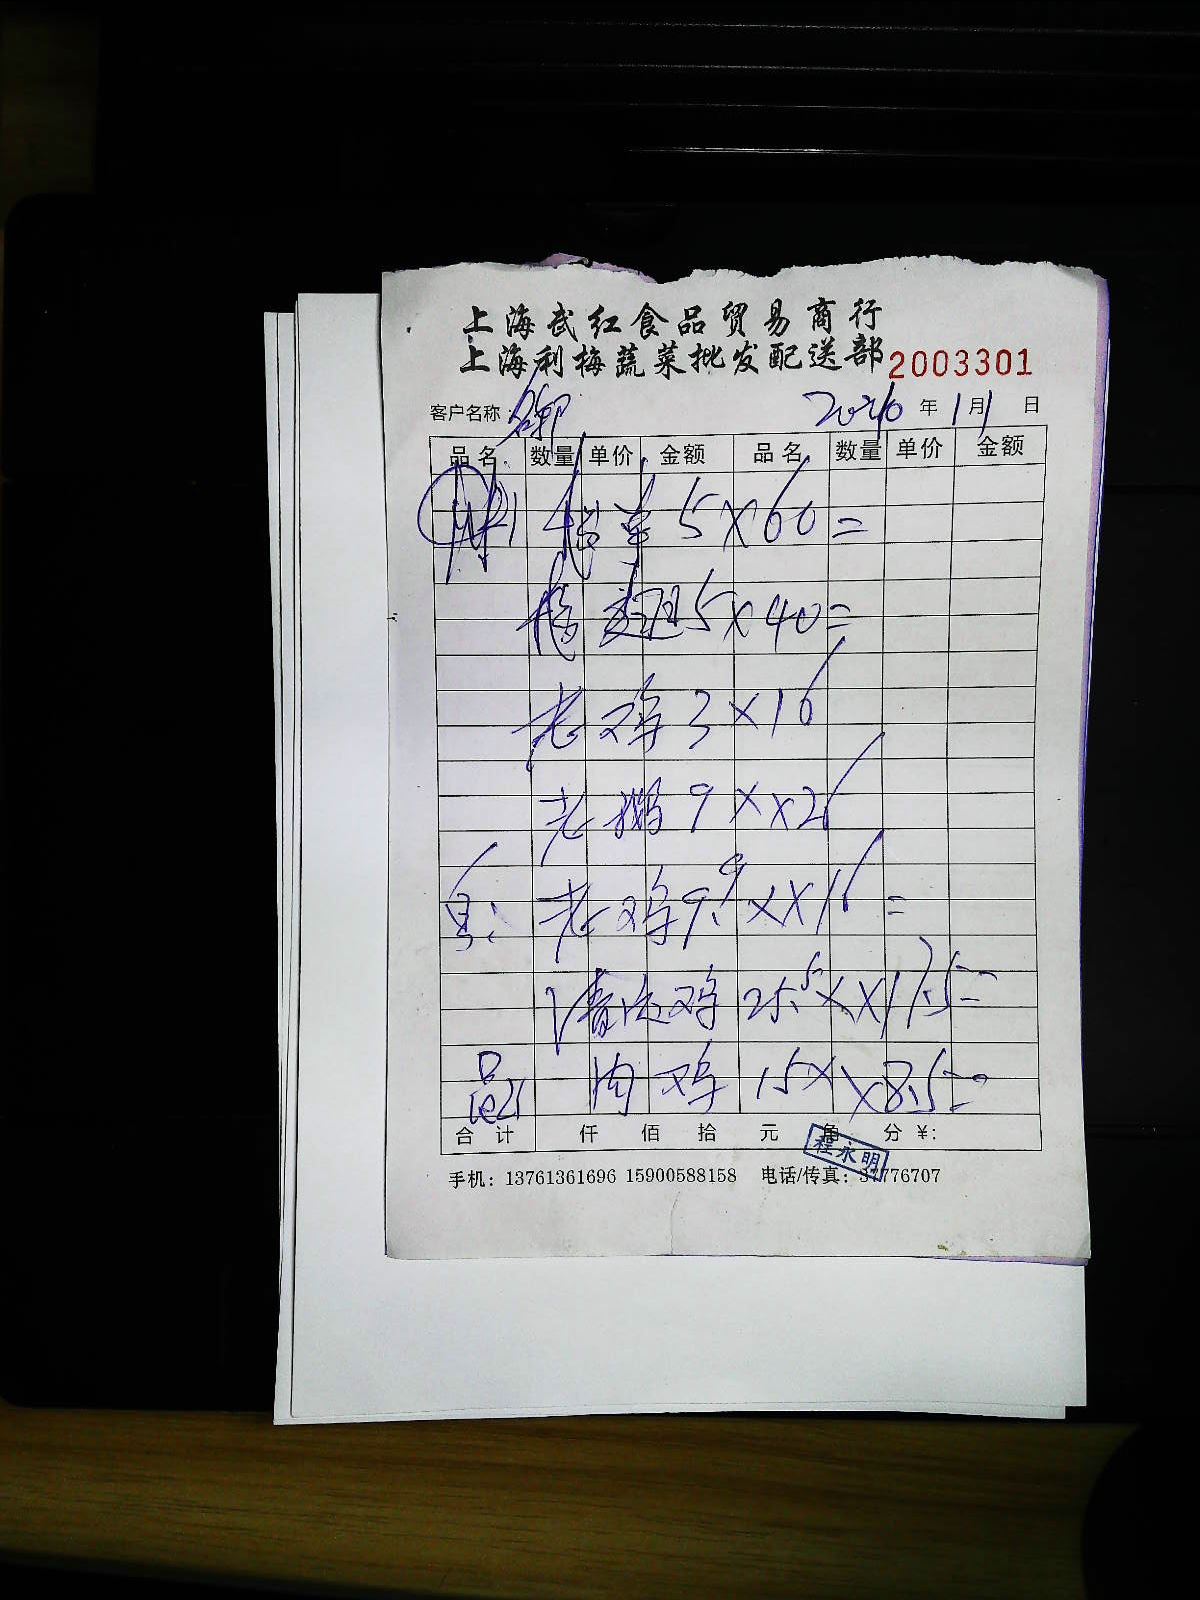 上海武红食品贸易商行
上海利梅蔬菜批发配送部 2003301
客户名称： 年 1月1日
品名 数量 单价 金额 品名 数量 单价 金额
5×60=
5×40=
老鸡 3×16
老鹅 9××26
老鸡 9.9××16=
鸡 25.5××17.5=
肉鸡 15××8.5=
合计 仟 佰 拾 元 角 分 ¥:
程永明
手机：13761361696 15900588158 电话/传真：37776707